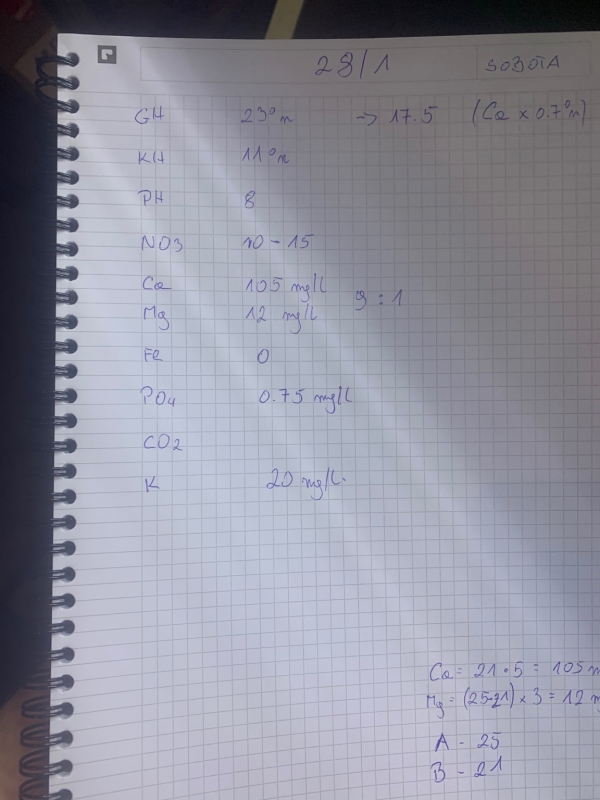 28/1 SOBOTA
GH 23°n -> 17.5 (Ca x 0.7°n)
KH 11°n
PH 8
NO3 10 - 15
Ca 105 mg/l
9 : 1
Mg 12 mg/l
Fe 0
PO4 0.75 mg/l
CO2
K 20 mg/l.
Ca = 21 • 5 = 105 m
Mg = (25-21) x 3 = 12 m
A - 25
B - 21